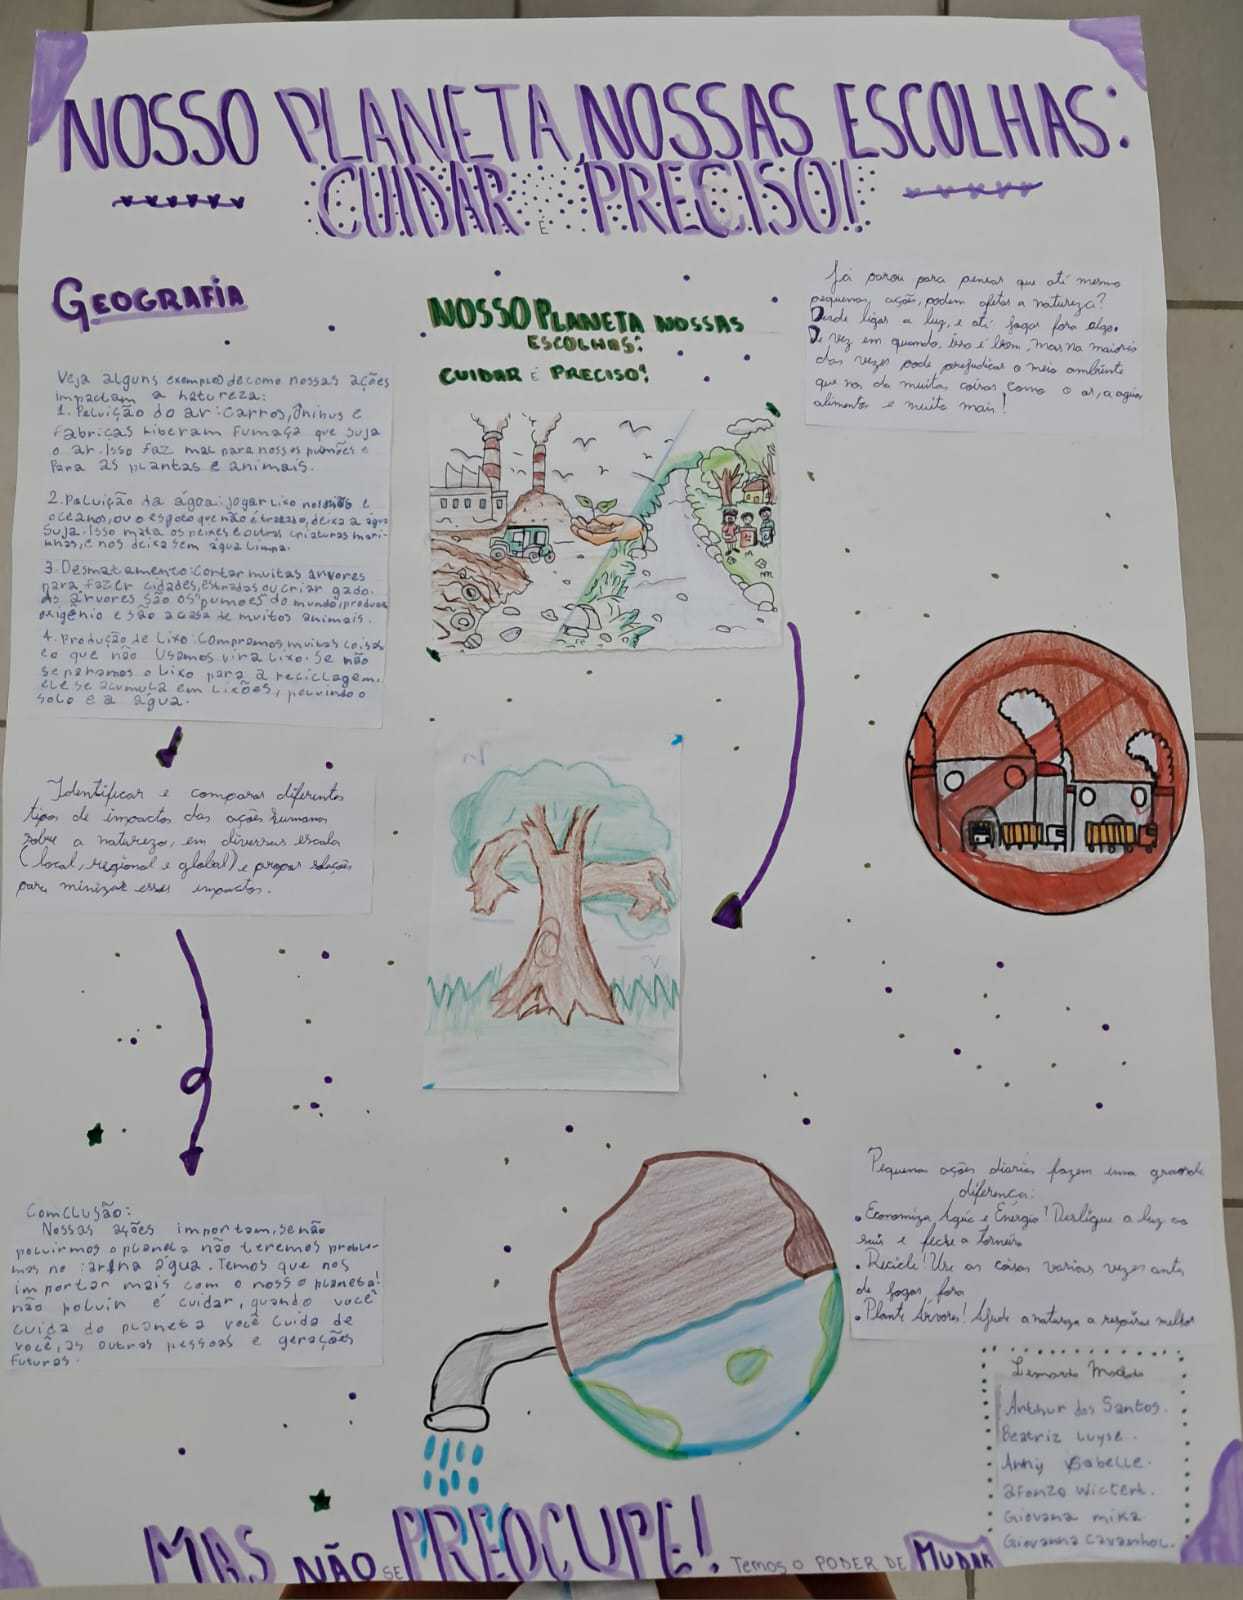 NOSSO PLANETA, NOSSAS ESCOLHAS:
CUIDAR É PRECISO!
GEOGRAFIA
Veja alguns exemplos de como nossas ações
impactam a natureza:
1. Poluição do ar: carros, ônibus e
fábricas liberam fumaça que suja
o ar. Isso faz mal para nossos pulmões e
para as plantas e animais.
2. Poluição da água: jogar lixo nos rios e
oceanos, ou o esgoto que não é tratado, deixa a água
suja. Isso mata os peixes e outras criaturas mari-
nhas, e nos deixa sem água limpa.
3. Desmatamento: cortar muitas árvores
para fazer cidades, estradas ou criar gado.
As árvores são os pumões do mundo, produz
oxigênio e são a casa de muitos animais.
4. Produção de lixo: Compramos muitas coisas
e o que não usamos vira lixo. Se não
separamos o lixo para a reciclagem,
ele se acumula em lixões, poluindo o
solo e a água.
Identificar e comparar diferentes
tipos de impactos das ações humanas
sobre a natureza, em diversas escala
(local, regional e global) e propor soluções
para minizar esses impactos.
Comclusão:
Nossas ações importam, se não
poluirmos o planeta não teremos proble-
mas no ar na água. Temos que nos
importar mais com o nosso planeta!
não poluir é cuidar, quando você
cuida do planeta você cuida de
você, as outras pessoas e gerações
futuras.
NOSSO PLANETA NOSSAS
ESCOLHAS:
CUIDAR É PRECISO!
Já parou para pensar que até mesmo
pequenas ações, podem afetar a natureza?
Desde ligar a luz, e até jogar fora algo.
De vez em quando, isso é bom, mas na maioria
das vezes pode prejudicar o meio ambiente
que nos da muitas coisas como o ar, a agua
alimentos e muito mais!
Pequenas ações diarias fazem uma grande
diferença:
• Economize Água e Energia! Desligue a luz ao
sair e feche a torneira
• Recicle! Use as coisas varias vezes antes
de jogar fora
• Plante Árvores! Ajude a natureza a respirar melhor
Arthur dos Santos.
Beatriz Luyse.
Anny Ysabelle.
Afonzo
Giovana mika
Giovanna
MAS NÃO SE PREOCUPE! TEMOS O PODER DE MUDAR